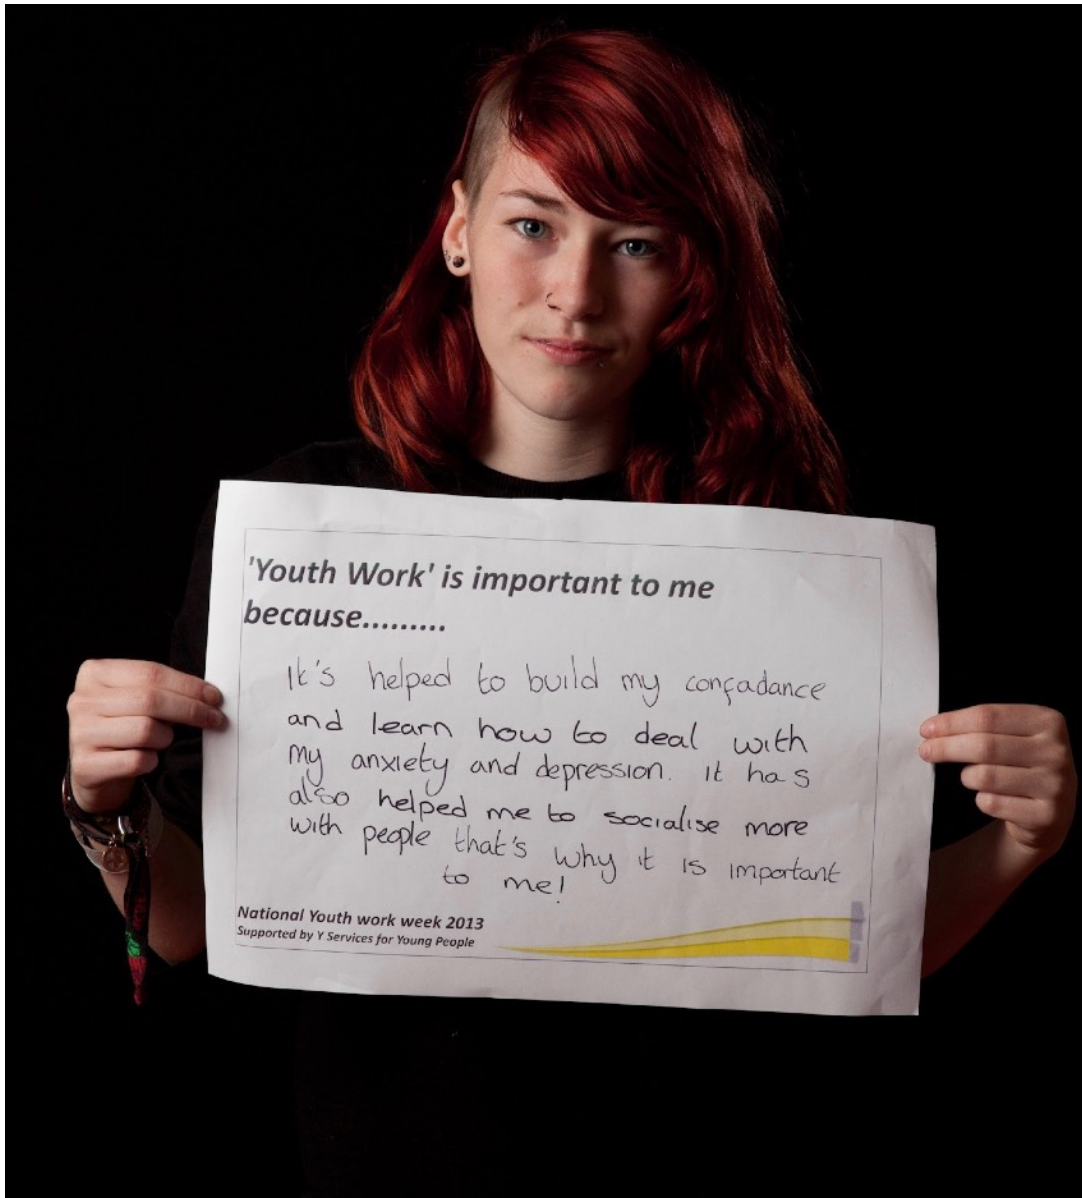 'Youth Work' is important to me
because.........
It's helped to build my confadance
and learn how to deal with
my anxiety and depression. it has
also helped me to socialise more
with people that's why it is important
to me!
National Youth work week 2013
Supported by Y Services for Young People